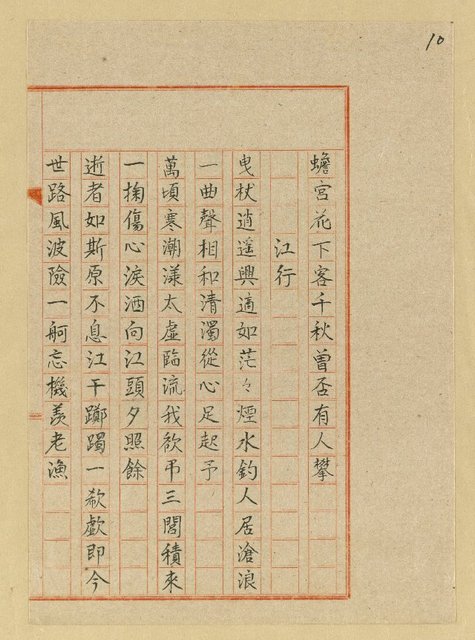 10
蟾宮花下客千秋曾否有人攀
江行
曳杖逍遥興適如茫々煙水釣人居滄浪
一曲聲相和清濁從心足起予
萬頃寒潮漾太虛臨流我欲弔三閭積來
一掬傷心淚洒向江頭夕照餘
逝者如斯原不息江干躑躅一欷歔即今
世路風波險一舸忘機羨老漁